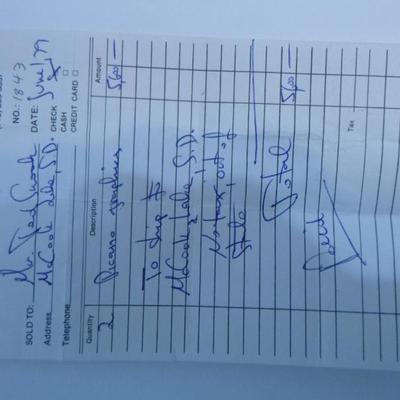 NO.: 1843
SOLD TO: Mr. Ted
DATE: June 1, 79
Address McCook Lake, S.D. CHECK
CASH
Telephone CREDIT CARD
Quantity Description Amount
2 Picasso graphics 5,600 —
To ship to
McCook Lake, S.D.
No tax, out of
state
Total 5,600 —
Paid
Tax